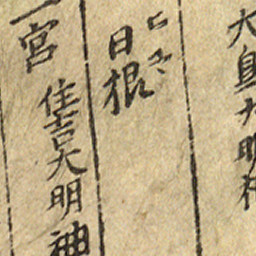 大鳥大明神
日根
一宮 住吉大明神